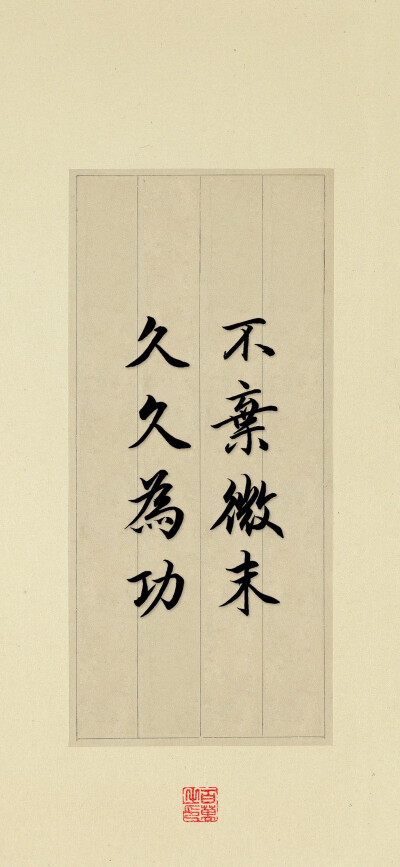 不棄微末
久久為功
百萬